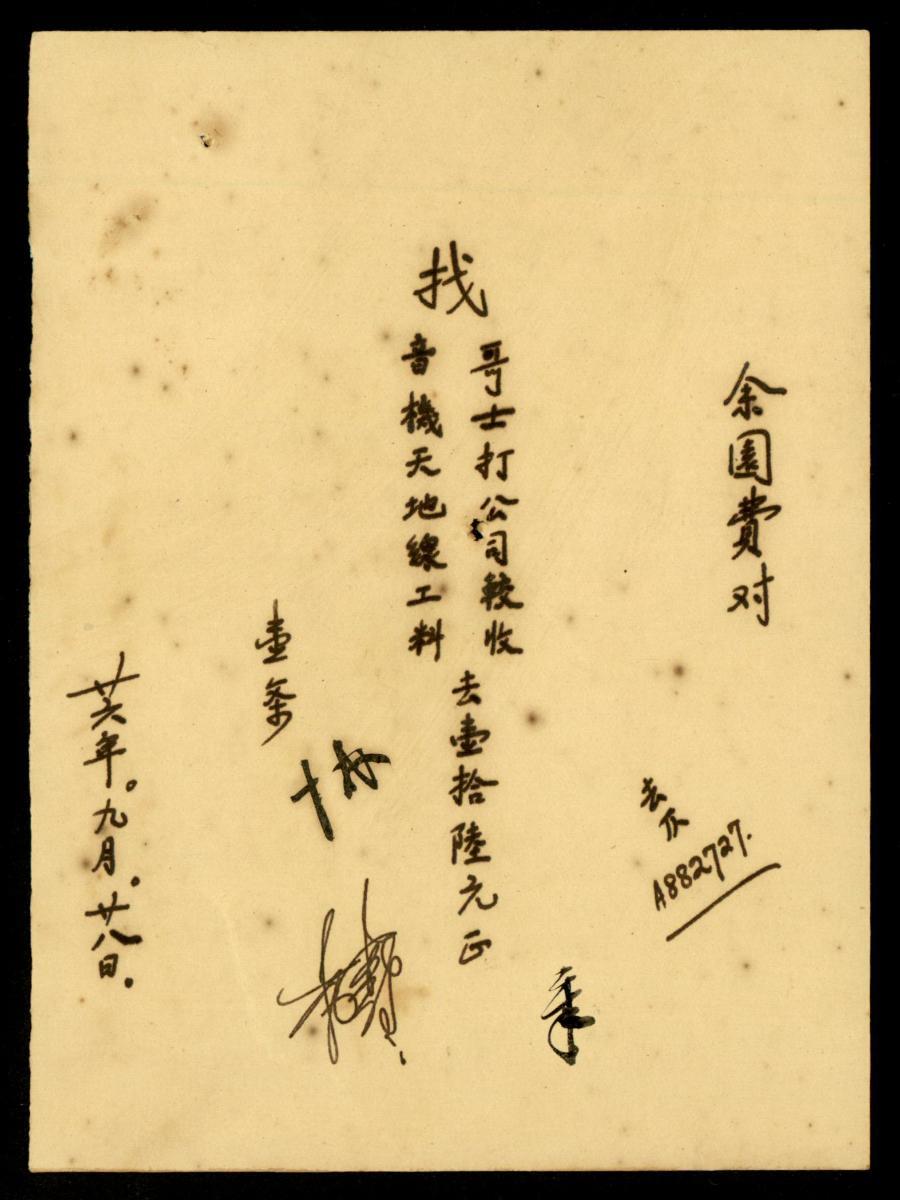 余園費对
去仄
A882727.
找
哥士打公司較收
音機天地線工料
去壹拾陸元正
壹条
廿六年。九月。廿八日。